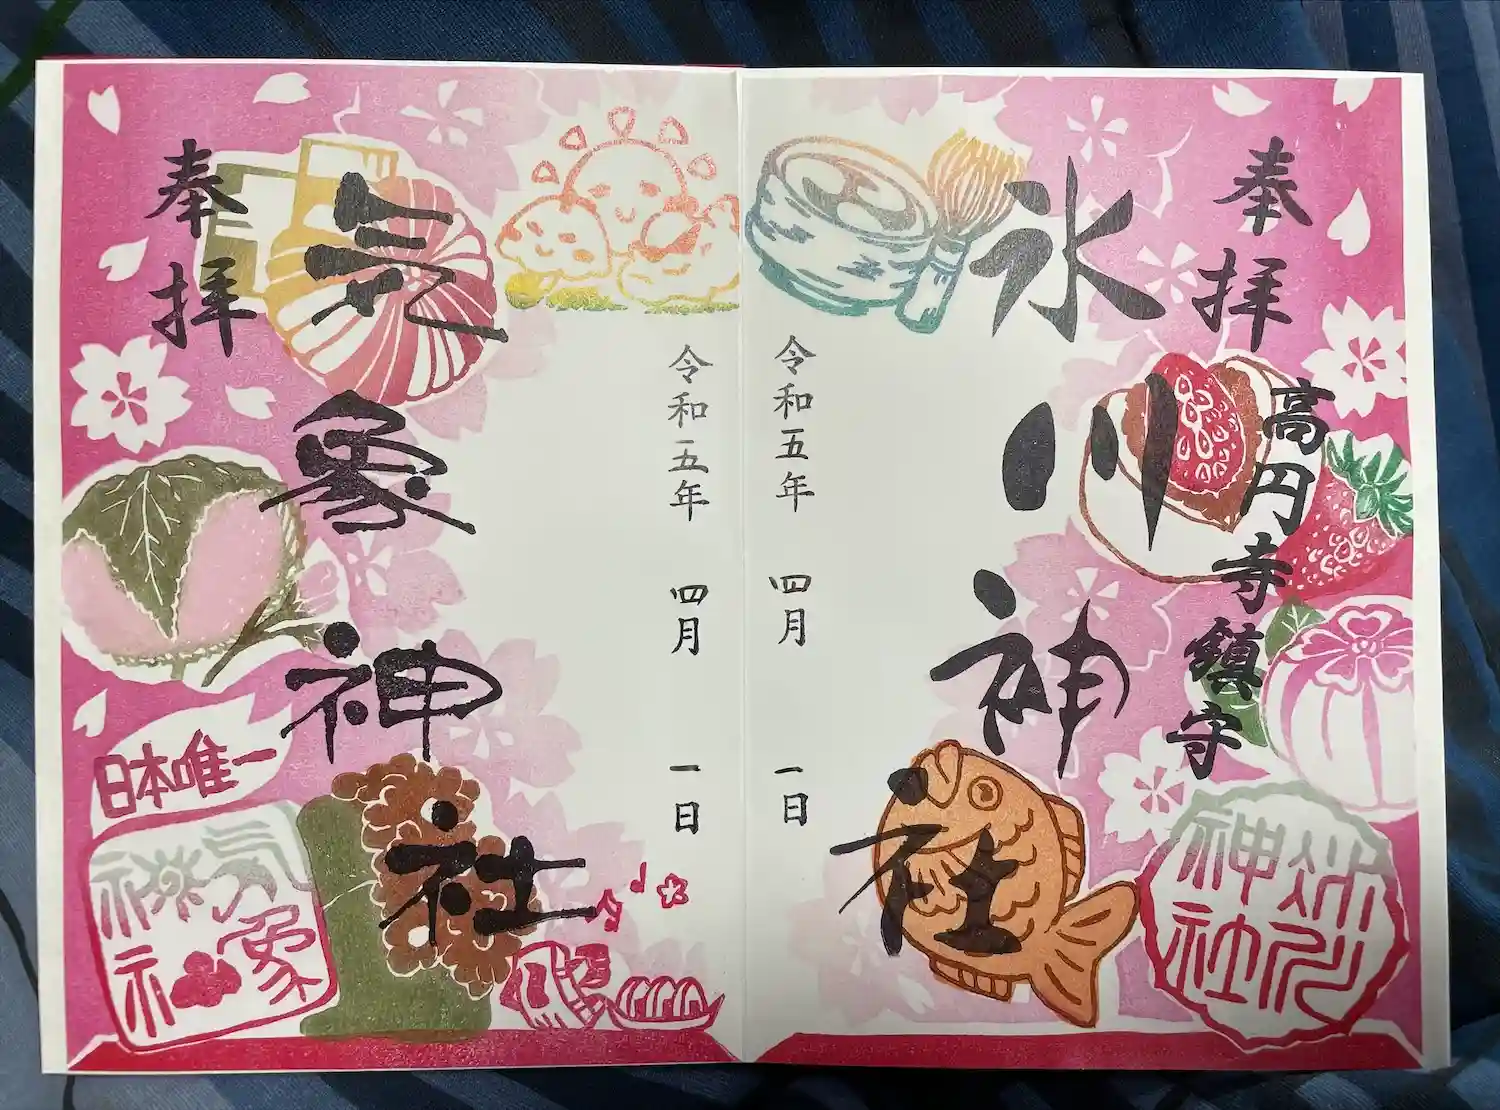 奉拝
高円寺鎮守
氷川神社
氷川神社
令和五年 四月 一日
令和五年 四月 一日
気象神社
奉拝
日本唯一
気象神社